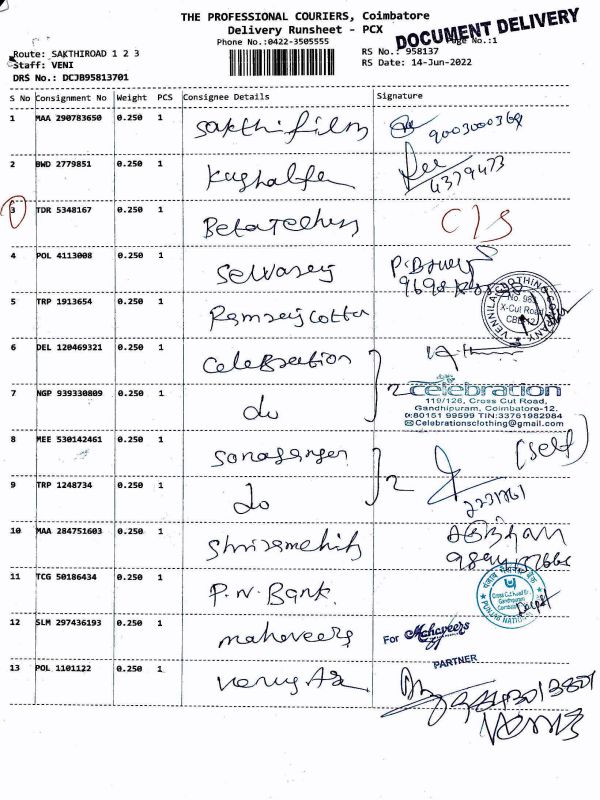 THE PROFESSIONAL COURIERS, Coimbatore
Delivery Runsheet - PCX
DOCUMENT DELIVERY
Phone No.:0422-3505555
Page No.:1
Route: SAKTHIROAD 1 2 3
RS No.: 958137
Staff: VENI
RS Date: 14-Jun-2022
DRS No.: DCJB95813701
S No Consignment No Weight PCS Consignee Details Signature
1 MAA 290783650 0.250 1 Sakthi film
2 BWD 2779851 0.250 1 4379473
3 TDR 5348167 0.250 1 C/S
4 POL 4113008 0.250 1 Selvaraj
5 TRP 1913654 0.250 1 Ramraj Cotton
VENNILA CLOTHING COMPANY
X-Cut Road
6 DEL 120469321 0.250 1 Celebration
7 NGP 939330809 0.250 1 do 2
celebration
119/126, Cross Cut Road,
Gandhipuram, Coimbatore-12.
80151 99599 TIN:33761982984
Celebrationsclothing@gmail.com
8 MEE 530142461 0.250 1 (Self)
9 TRP 1248734 0.250 1 do 2
10 MAA 284751603 0.250 1
11 TCG 50186434 0.250 1 P.N. Bank
12 SLM 297436193 0.250 1 mahaveers
For Mahaveers
PARTNER
13 POL 1101122 0.250 1